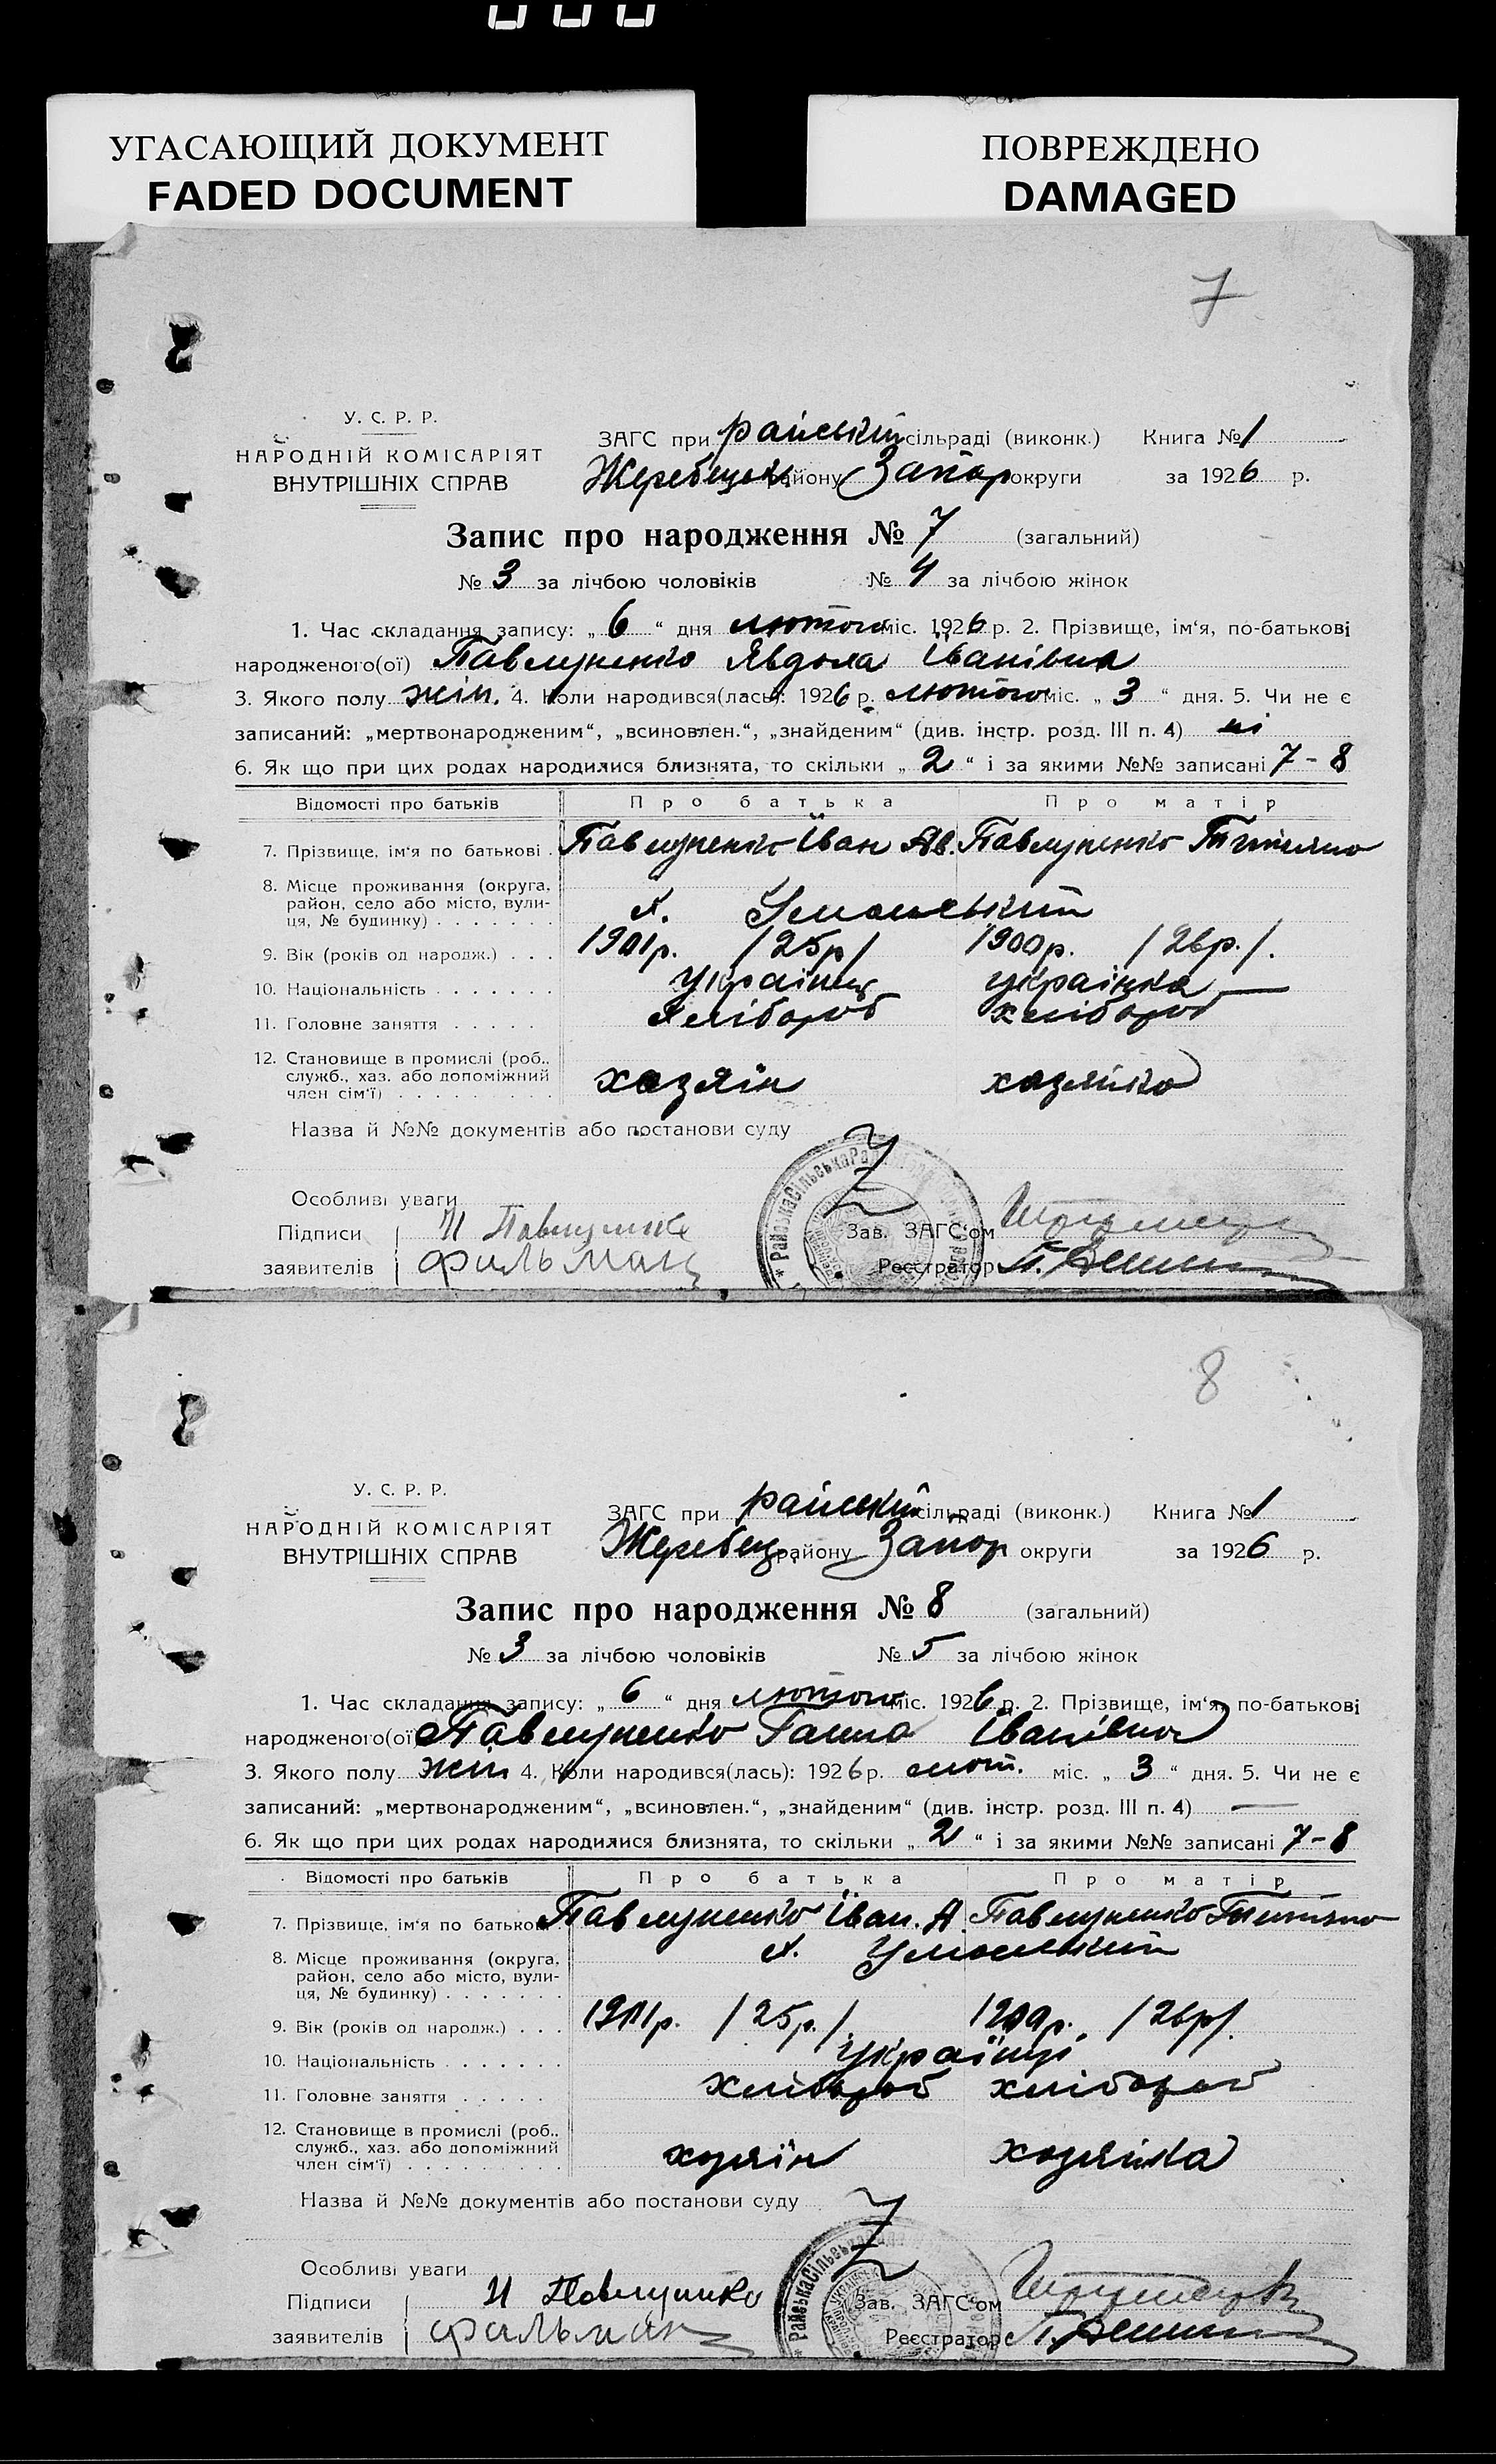 УГАСАЮЩИЙ ДОКУМЕНТ
FADED DOCUMENT
ПОВРЕЖДЕНО
DAMAGED
7
У. С. Р. Р.
НАРОДНІЙ КОМІСАРІЯТ
ВНУТРІШНІХ СПРАВ
ЗАГС при райській сільраді (виконк.) Книга № 1
Жеребецьк району Запор округи за 1926 р.
Запис про народження № 7 (загальний)
№ 3 за лічбою чоловіків № 4 за лічбою жінок
1. Час складання запису: „ 6 “ дня лютого міс. 1926 р. 2. Прізвище, ім‘я, по-батькові
народженого(ої) Павлуненко Явдоха Іванівна
3. Якого полу жін. 4. Коли народився(лась): 1926 р. лютого міс. „ 3 “ дня. 5. Чи не є
записаний: „мертвонародженим“, „всиновлен.“, „знайденим“ (див. інстр. розд. III п. 4) ні
6. Як що при цих родах народилися близнята, то скільки „ 2 “ і за якими №№ записані 7 - 8
Відомості про батьків Про батька Про матір
7. Прізвище, ім‘я по батькові . Павлуненко Іван Яв. Павлуненко Титяна
8. Місце проживання (округа, район, село або місто, вулиця, № будинку) . . . . . . х. Уманський
9. Вік (років од народж.) . . . 1901р. /25р/ 1900р. /26р./.
10. Національність . . . . . . . Українець українка
11. Головне заняття . . . . . Хлібороб хлібороб
12. Становище в промислі (роб., служб., хаз. або допоміжний член сім‘ї) . . . . . . . . . хазяїн хазяйка
Назва й №№ документів або постанови суду
Особливі уваги
Підписи И Павлуненко Зав. ЗАГС‘ом
заявителів Фильман Реєстратор
* Райська Сільська Рада
8
У. С. Р. Р.
НАРОДНІЙ КОМІСАРІЯТ
ВНУТРІШНІХ СПРАВ
ЗАГС при райській сільраді (виконк.) Книга № 1
Жеребец району Запор округи за 1926 р.
Запис про народження № 8 (загальний)
№ 3 за лічбою чоловіків № 5 за лічбою жінок
1. Час складання запису: „ 6 “ дня лютого міс. 1926 р. 2. Прізвище, ім‘я, по-батькові
народженого(ої) Павлуненко Ганна Іванівна
3. Якого полу жін 4. Коли народився(лась): 1926 р. лют. міс. „ 3 “ дня. 5. Чи не є
записаний: „мертвонародженим“, „всиновлен.“, „знайденим“ (див. інстр. розд. III п. 4) —
6. Як що при цих родах народилися близнята, то скільки „ 2 “ і за якими №№ записані 7-8
Відомості про батьків Про батька Про матір
7. Прізвище, ім‘я по батькові Павлуненко Іван. Я. Павлуненко Титяна
8. Місце проживання (округа, район, село або місто, вулиця, № будинку) . . . . . . . х. Уманський
9. Вік (років од народж.) . . . 1901р. /25р./. 1900р. /26р/.
10. Національність . . . . . . . Українці
11. Головне заняття . . . . . хлібороб хлібороб
12. Становище в промислі (роб., служб., хаз. або допоміжний член сім‘ї) . . . . . . . . . хозяїн хозяйка
Назва й №№ документів або постанови суду
Особливі уваги
Підписи И Павлуненко Зав. ЗАГС‘ом
заявителів Фильман Реєстратор
* Райська Сільська